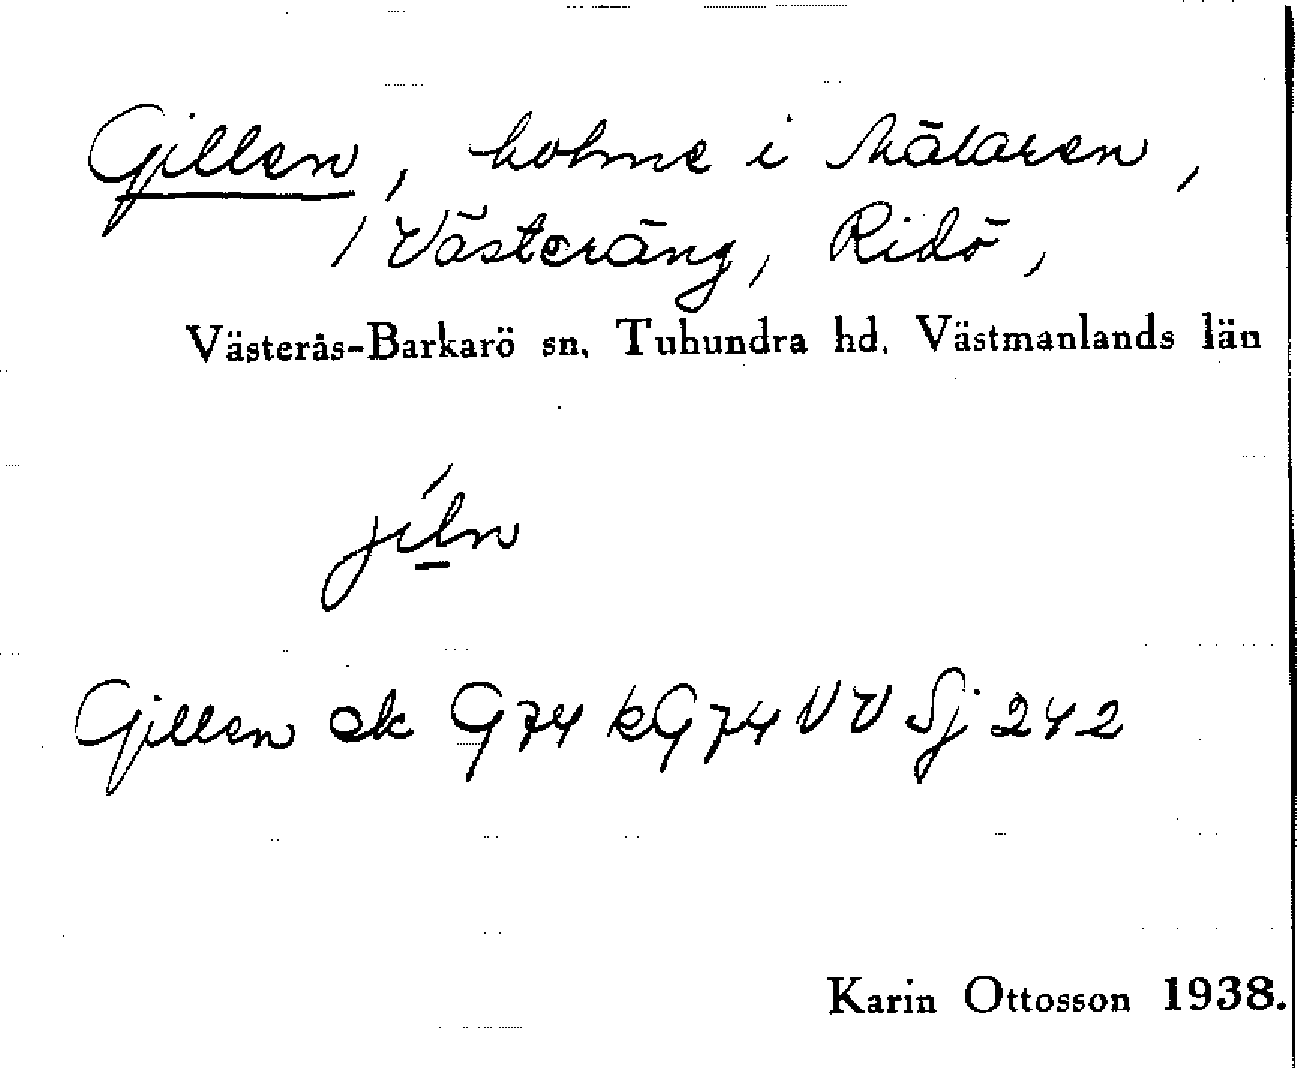 Gillen, holme i Mälaren,
, Västeräng, Ridö,
Västerås-Barkarö sn. Tuhundra hd. Västmanlands län
jíln
Gillen ek G74 kG74 VV Sj 242
Karin Ottosson 1938.